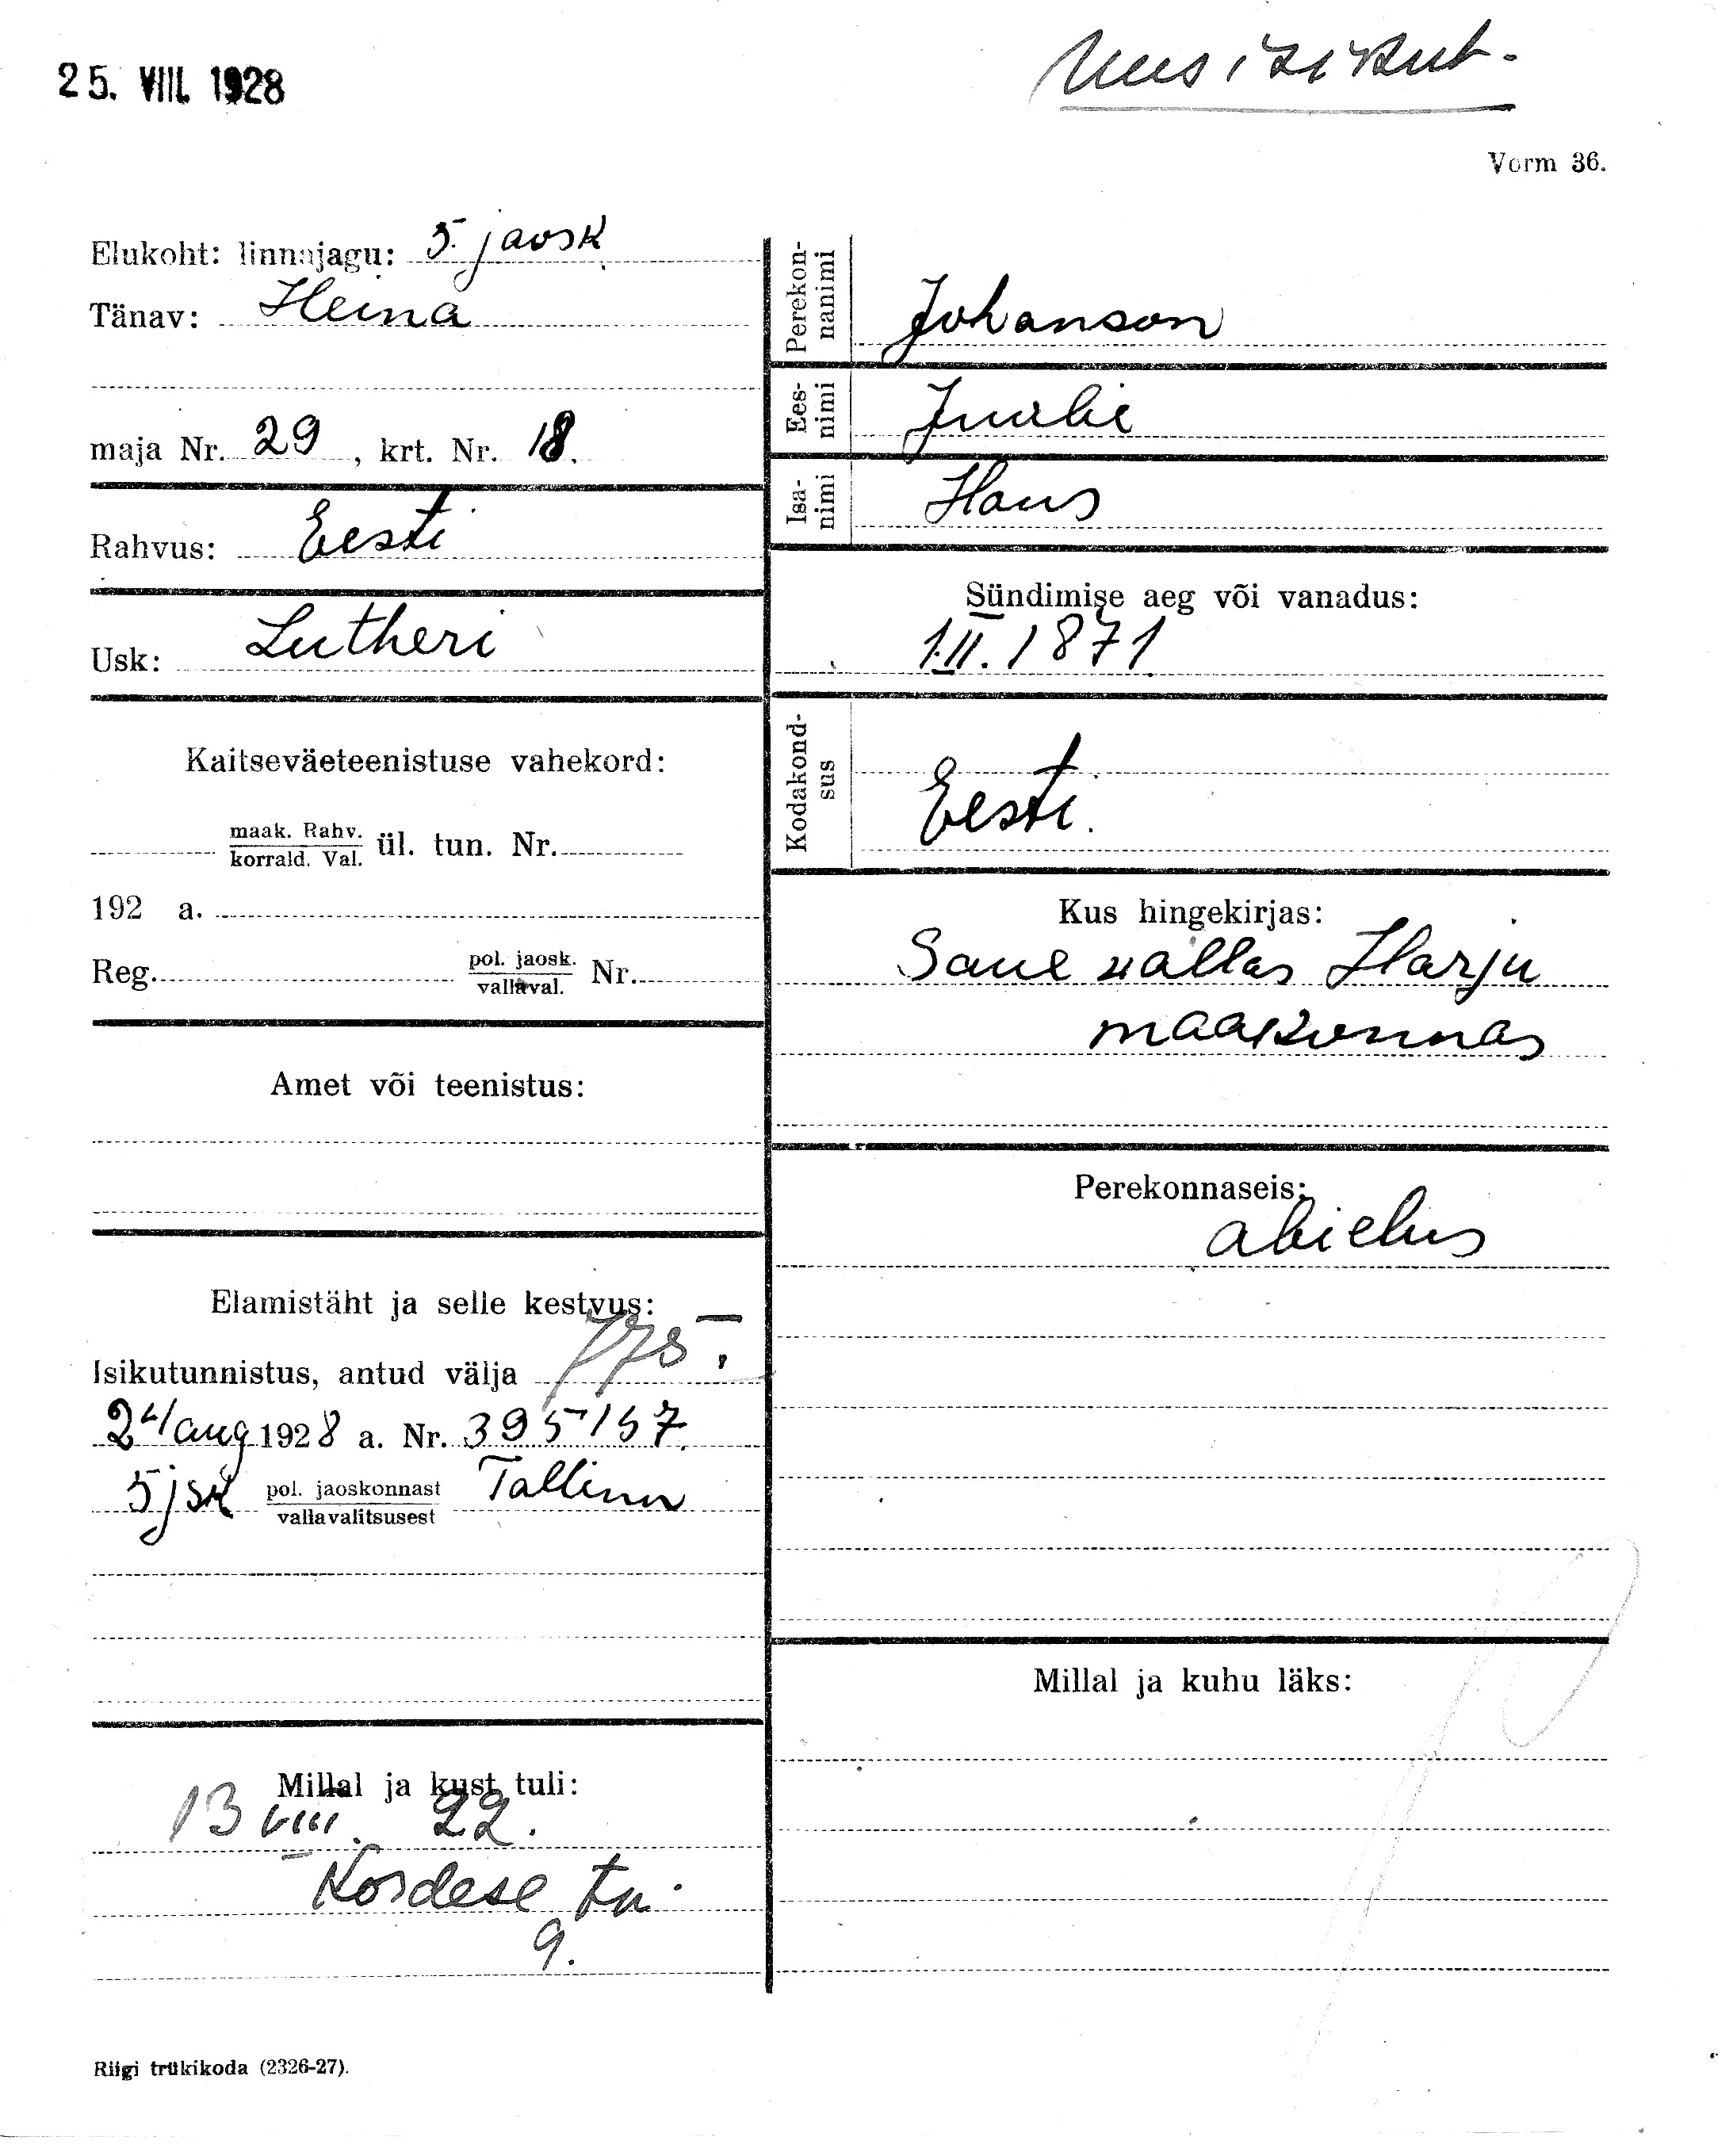 25. VIII. 1928
Uus isikut.
Vorm 36.
Elukoht: linnajagu: 5. jaosk
Tänav: Heina
maja Nr. 29, krt. Nr. 18.
Rahvus: Eesti
Usk: Lutheri
Kaitseväeteenistuse vahekord:
maak. Rahv.
korrald. Val. ül. tun. Nr.
192 a.
Reg. pol. jaosk. Nr.
vallaval.
Amet või teenistus:
Elamistäht ja selle kestvus:
Isikutunnistus, antud välja
24/aug 1928 a. Nr. 395157.
5 jsk pol. jaoskonnast Tallinn
vallavalitsusest
Millal ja kust tuli:
13 VIII. 22.
Kordese tn.
9.
Riigi trükikoda (2326-27).
Perekon-
nanimi
Johanson
Ees-
nimi
Juulie
Isa-
nimi
Hans
Sündimise aeg või vanadus:
1.II.1871
Kodakond-
sus
Eesti.
Kus hingekirjas:
Saue vallas Harju
maakonnas
Perekonnaseis:
abielus
Millal ja kuhu läks: